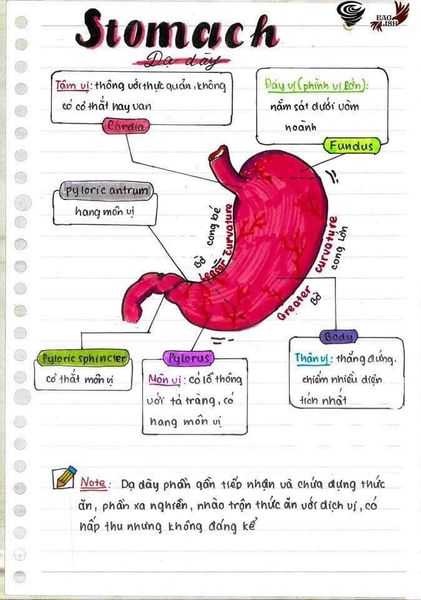 Stomach
Dạ dày
EAG
LISH
Tâm vị: thông với thực quản, không
có cơ thắt hay van
Cardia
Đáy vị (phình vị lớn):
nằm sát dưới vòm
hoành
Fundus
Pyloric antrum
hang môn vị
Bờ cong bé
Lesser curvature
Greater curvature
Bờ cong lớn
Pyloric sphincter
cơ thắt môn vị
Pylorus
Môn vị: có lỗ thông
với tá tràng, có
hang môn vị
Body
Thân vị: thẳng đứng,
chiếm nhiều diện
tích nhất
Note: Dạ dày phần gần tiếp nhận và chứa đựng thức
ăn, phần xa nghiền, nhào trộn thức ăn với dịch vị, có
hấp thu nhưng không đáng kể